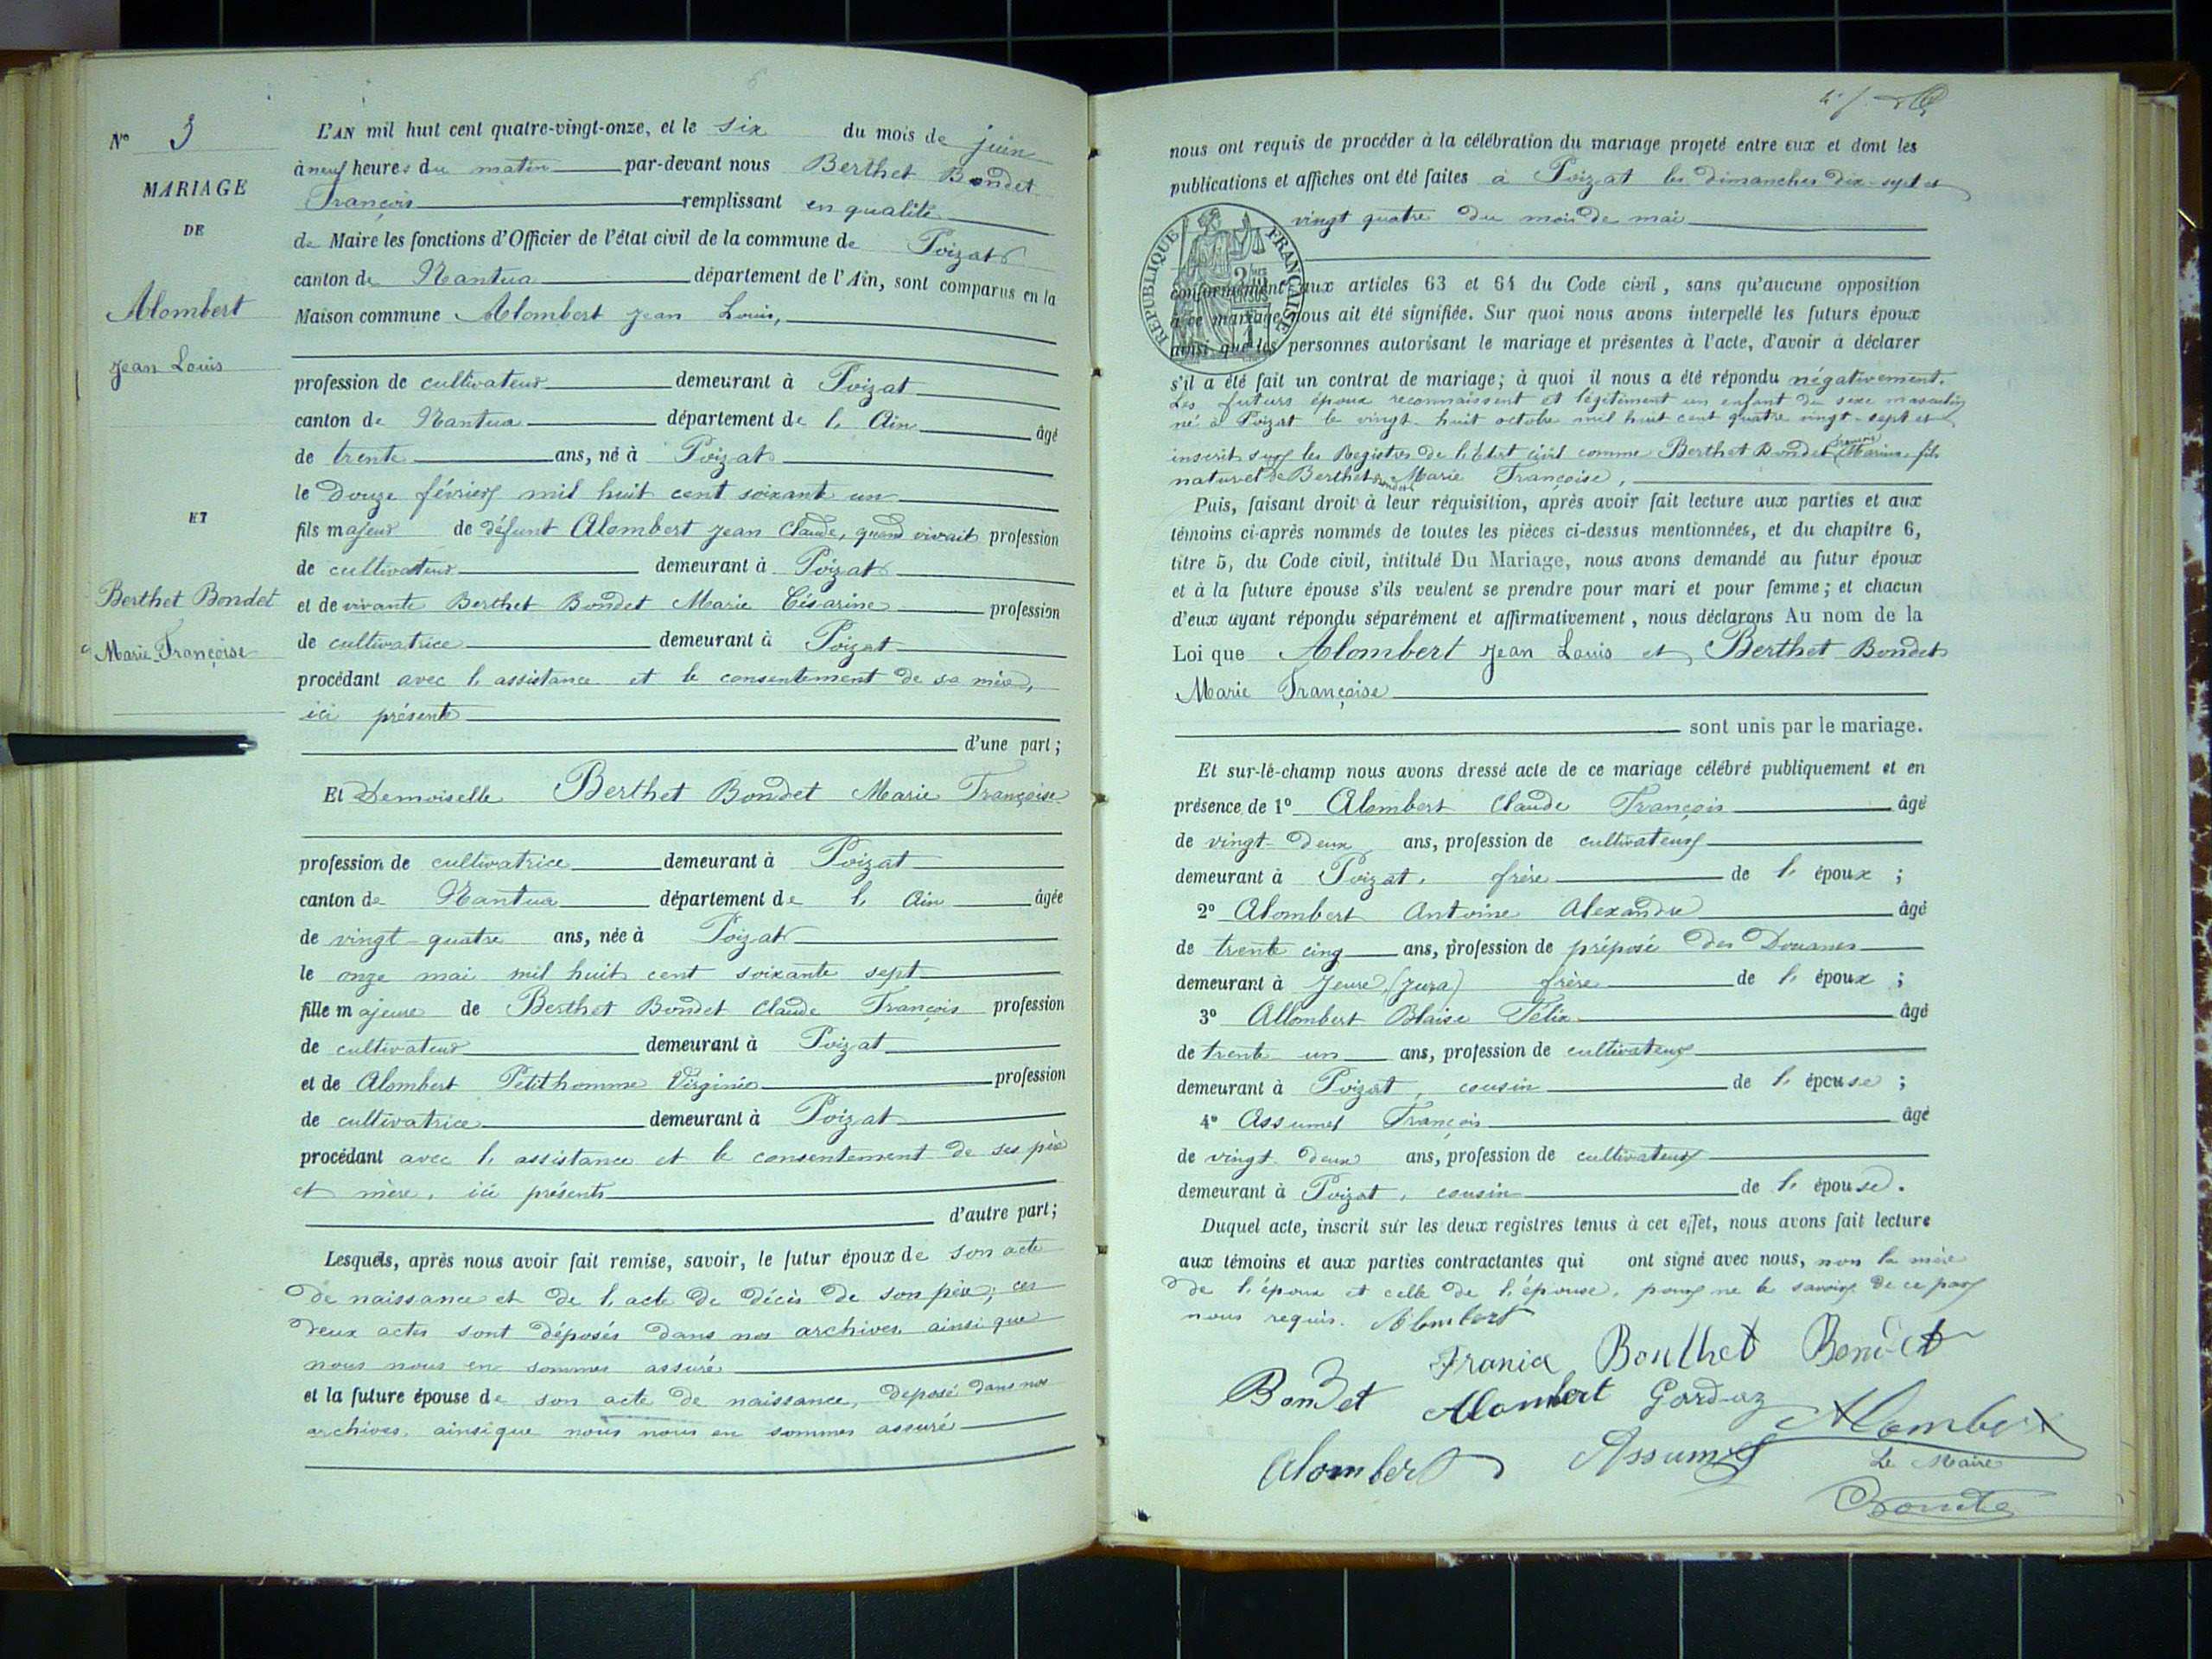 N° 3
MARIAGE
DE
Alombert
Jean Louis
ET
Berthet Bondet
Marie Françoise
L'AN mil huit cent quatre-vingt-onze, et le six du mois de juin
à neuf heures du matin par-devant nous Berthet Bondet
François remplissant en qualité
de Maire les fonctions d'Officier de l'état civil de la commune de Poizat
canton de Nantua département de l'Ain, sont comparus en la
Maison commune Alombert Jean Louis,
profession de cultivateur demeurant à Poizat
canton de Nantua département de l'Ain âgé
de trente ans, né à Poizat
le douze février mil huit cent soixante un
fils majeur de défunt Alombert Jean Claude, quand vivait profession
de cultivateur demeurant à Poizat
et de vivante Berthet Bondet Marie Césarine profession
de cultivatrice demeurant à Poizat
procédant avec l'assistance et le consentement de sa mère,
ici présente
d'une part;
Et Demoiselle Berthet Bondet Marie Françoise
profession de cultivatrice demeurant à Poizat
canton de Nantua département de l'Ain âgée
de vingt-quatre ans, née à Poizat
le onze mai mil huit cent soixante sept
fille majeure de Berthet Bondet Claude François profession
de cultivateur demeurant à Poizat
et de Alombert Petithomme Virginie profession
de cultivatrice demeurant à Poizat
procédant avec l'assistance et le consentement de ses père
et mère, ici présents
d'autre part;
Lesquels, après nous avoir fait remise, savoir, le futur époux de son acte
de naissance et de l'acte de décès de son père, ces
deux actes sont déposés dans nos archives, ainsi que
nous nous en sommes assuré
et la future épouse de son acte de naissance, déposé dans nos
archives, ainsi que nous nous en sommes assuré
nous ont requis de procéder à la célébration du mariage projeté entre eux et dont les
publications et affiches ont été faites à Poizat les dimanches dix-sept et
vingt quatre du mois de mai
RÉPUBLIQUE FRANÇAISE
conformément aux articles 63 et 64 du Code civil, sans qu'aucune opposition
à ce mariage nous ait été signifiée. Sur quoi nous avons interpellé les futurs époux
ainsi que les personnes autorisant le mariage et présentes à l'acte, d'avoir à déclarer
s'il a été fait un contrat de mariage; à quoi il nous a été répondu négativement.
Les futurs époux reconnaissent et légitiment un enfant du sexe masculin
né à Poizat le vingt-huit octobre mil huit cent quatre vingt-sept et
inscrit sur les Registres de l'état civil comme Berthet Bondet François Marius fils
naturel de Berthet Bondet Marie Françoise,
Puis, faisant droit à leur réquisition, après avoir fait lecture aux parties et aux
témoins ci-après nommés de toutes les pièces ci-dessus mentionnées, et du chapitre 6,
titre 5, du Code civil, intitulé Du Mariage, nous avons demandé au futur époux
et à la future épouse s'ils veulent se prendre pour mari et pour femme; et chacun
d'eux ayant répondu séparément et affirmativement, nous déclarons Au nom de la
Loi que Alombert Jean Louis et Berthet Bondet
Marie Françoise
sont unis par le mariage.
Et sur-le-champ nous avons dressé acte de ce mariage célébré publiquement et en
présence de 1° Alombert Claude François âgé
de vingt-deux ans, profession de cultivateur
demeurant à Poizat, frère de l'époux;
2° Alombert Antoine Alexandre âgé
de trente cinq ans, profession de préposé des Douanes
demeurant à Jeure (Jura) frère de l'époux;
3° Allombert Blaise Félix âgé
de trente-un ans, profession de cultivateur
demeurant à Poizat, cousin de l'épouse;
4° Assumel François âgé
de vingt-deux ans, profession de cultivateur
demeurant à Poizat, cousin de l'épouse.
Duquel acte, inscrit sur les deux registres tenus à cet effet, nous avons fait lecture
aux témoins et aux parties contractantes qui ont signé avec nous, non la mère
de l'époux et celle de l'épouse, pour ne le savoir de ce par
nous requis. Alombert
Berthet Bondet
Bondet Alombert Gordaz Alombert
Alombert Assumel
Le Maire
Bondet